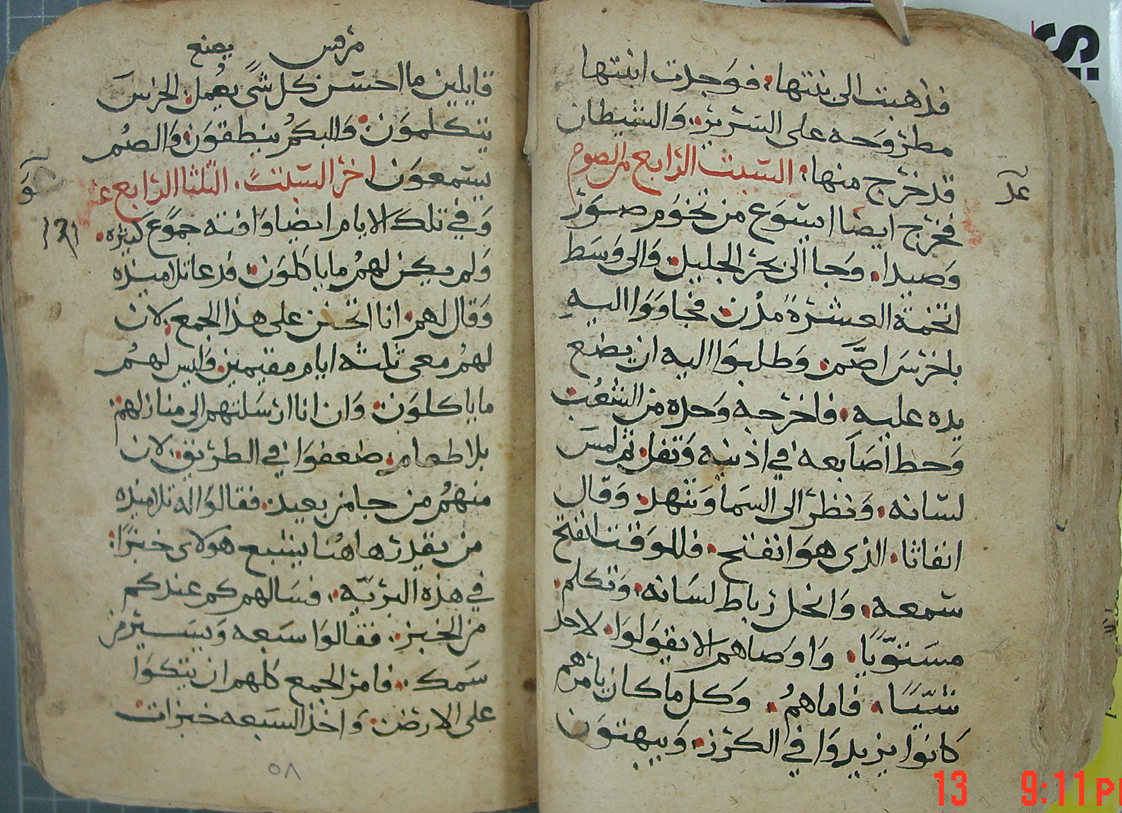 فذهبت الى بيتها، فوجدت ابنتها
مطروحه على السرير، والشيطان
قد خرج منها، السبت الرابع من الصوم
فخرج ايضا ايسوع من تخوم صور
وصيدا، وجا الى بحر الجليل، والى وسط
تخمة العشرة مدن، فجاووا اليه
باخرس اصم، وطلبوا اليه ان يضع
يده عليه، فاخرجه وحده من الشعب
وحط اصابعه في اذنيه وتفل، ثم لمس
لسانه، ونظر الى السما وتنهد، وقال
انفاثا، الذي هو انفتح، فللوقت انفتح
سمعه، وانحل رباط لسانه، وتكلم
مستويا، واوصاهم الا يقولوا لاحد
شيا، فاماهم، وكل ما كان يامرهم
كانوا يزيدوا في الكرز، ويبهتون
مرقس
يصنع
قايلين ما احسن كل شي يعمل، الخرس
يتكلمون، والبكم ينطقون، والصم
يسمعون اخر السبت، الثلثا الرابع
وفي تلك الايام ايضا وافته جموع كثيره،
ولم يكن لهم ما ياكلون، فدعا تلاميذه
وقال لهم، انا اتحنن على هذا الجمع، لان
لهم معي ثلثه ايام مقيمين، فليس لهم
ما ياكلون، وان انا ارسلتهم الى منازلهم
بلا طعام، ضعفوا في الطريق، لان
منهم من جا من بعيد، فقالوا له تلاميذه
من يقدر هاهنا يشبع هولاي خبزا،
في هذه البريه، فسالهم كم عندكم
من الخبز، فقالوا سبعه ويسير من
سمك، فامر الجمع كلهم ان يتكوا
على الارض، واخذ السبعه خبزات
٥٨
13 9:11 P